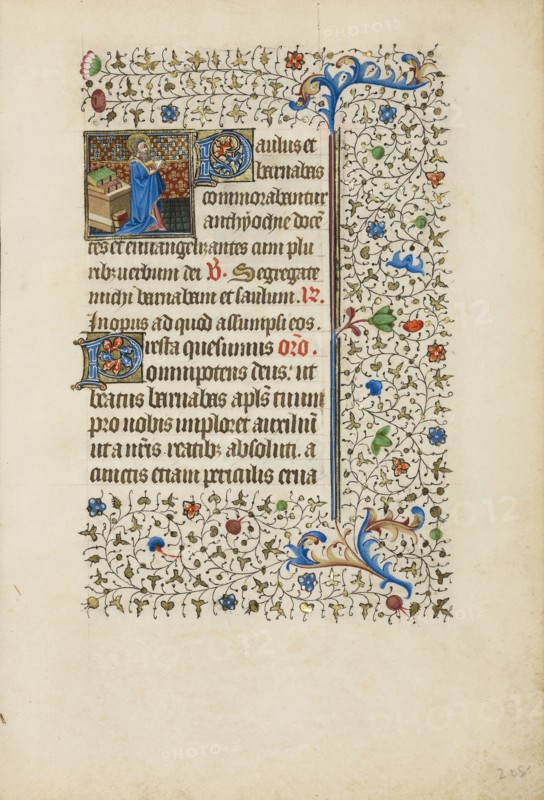 Paulus et
barnabas
commorabantur
anthyochye docē
tes et euuangelizantes cum plu
ribz uerbum dei V. Segregate
michi barnabam et saulum. R.
In opus ad quod assumpsi eos.
Presta quesumus oro.
omnipotens deus: ut
beatus barnabas apls tuum
pro nobis imploret auxiliū
ut a nr̄is reatibz absoluti. a
cunctis etiam periculis erua
208
PHOTO12